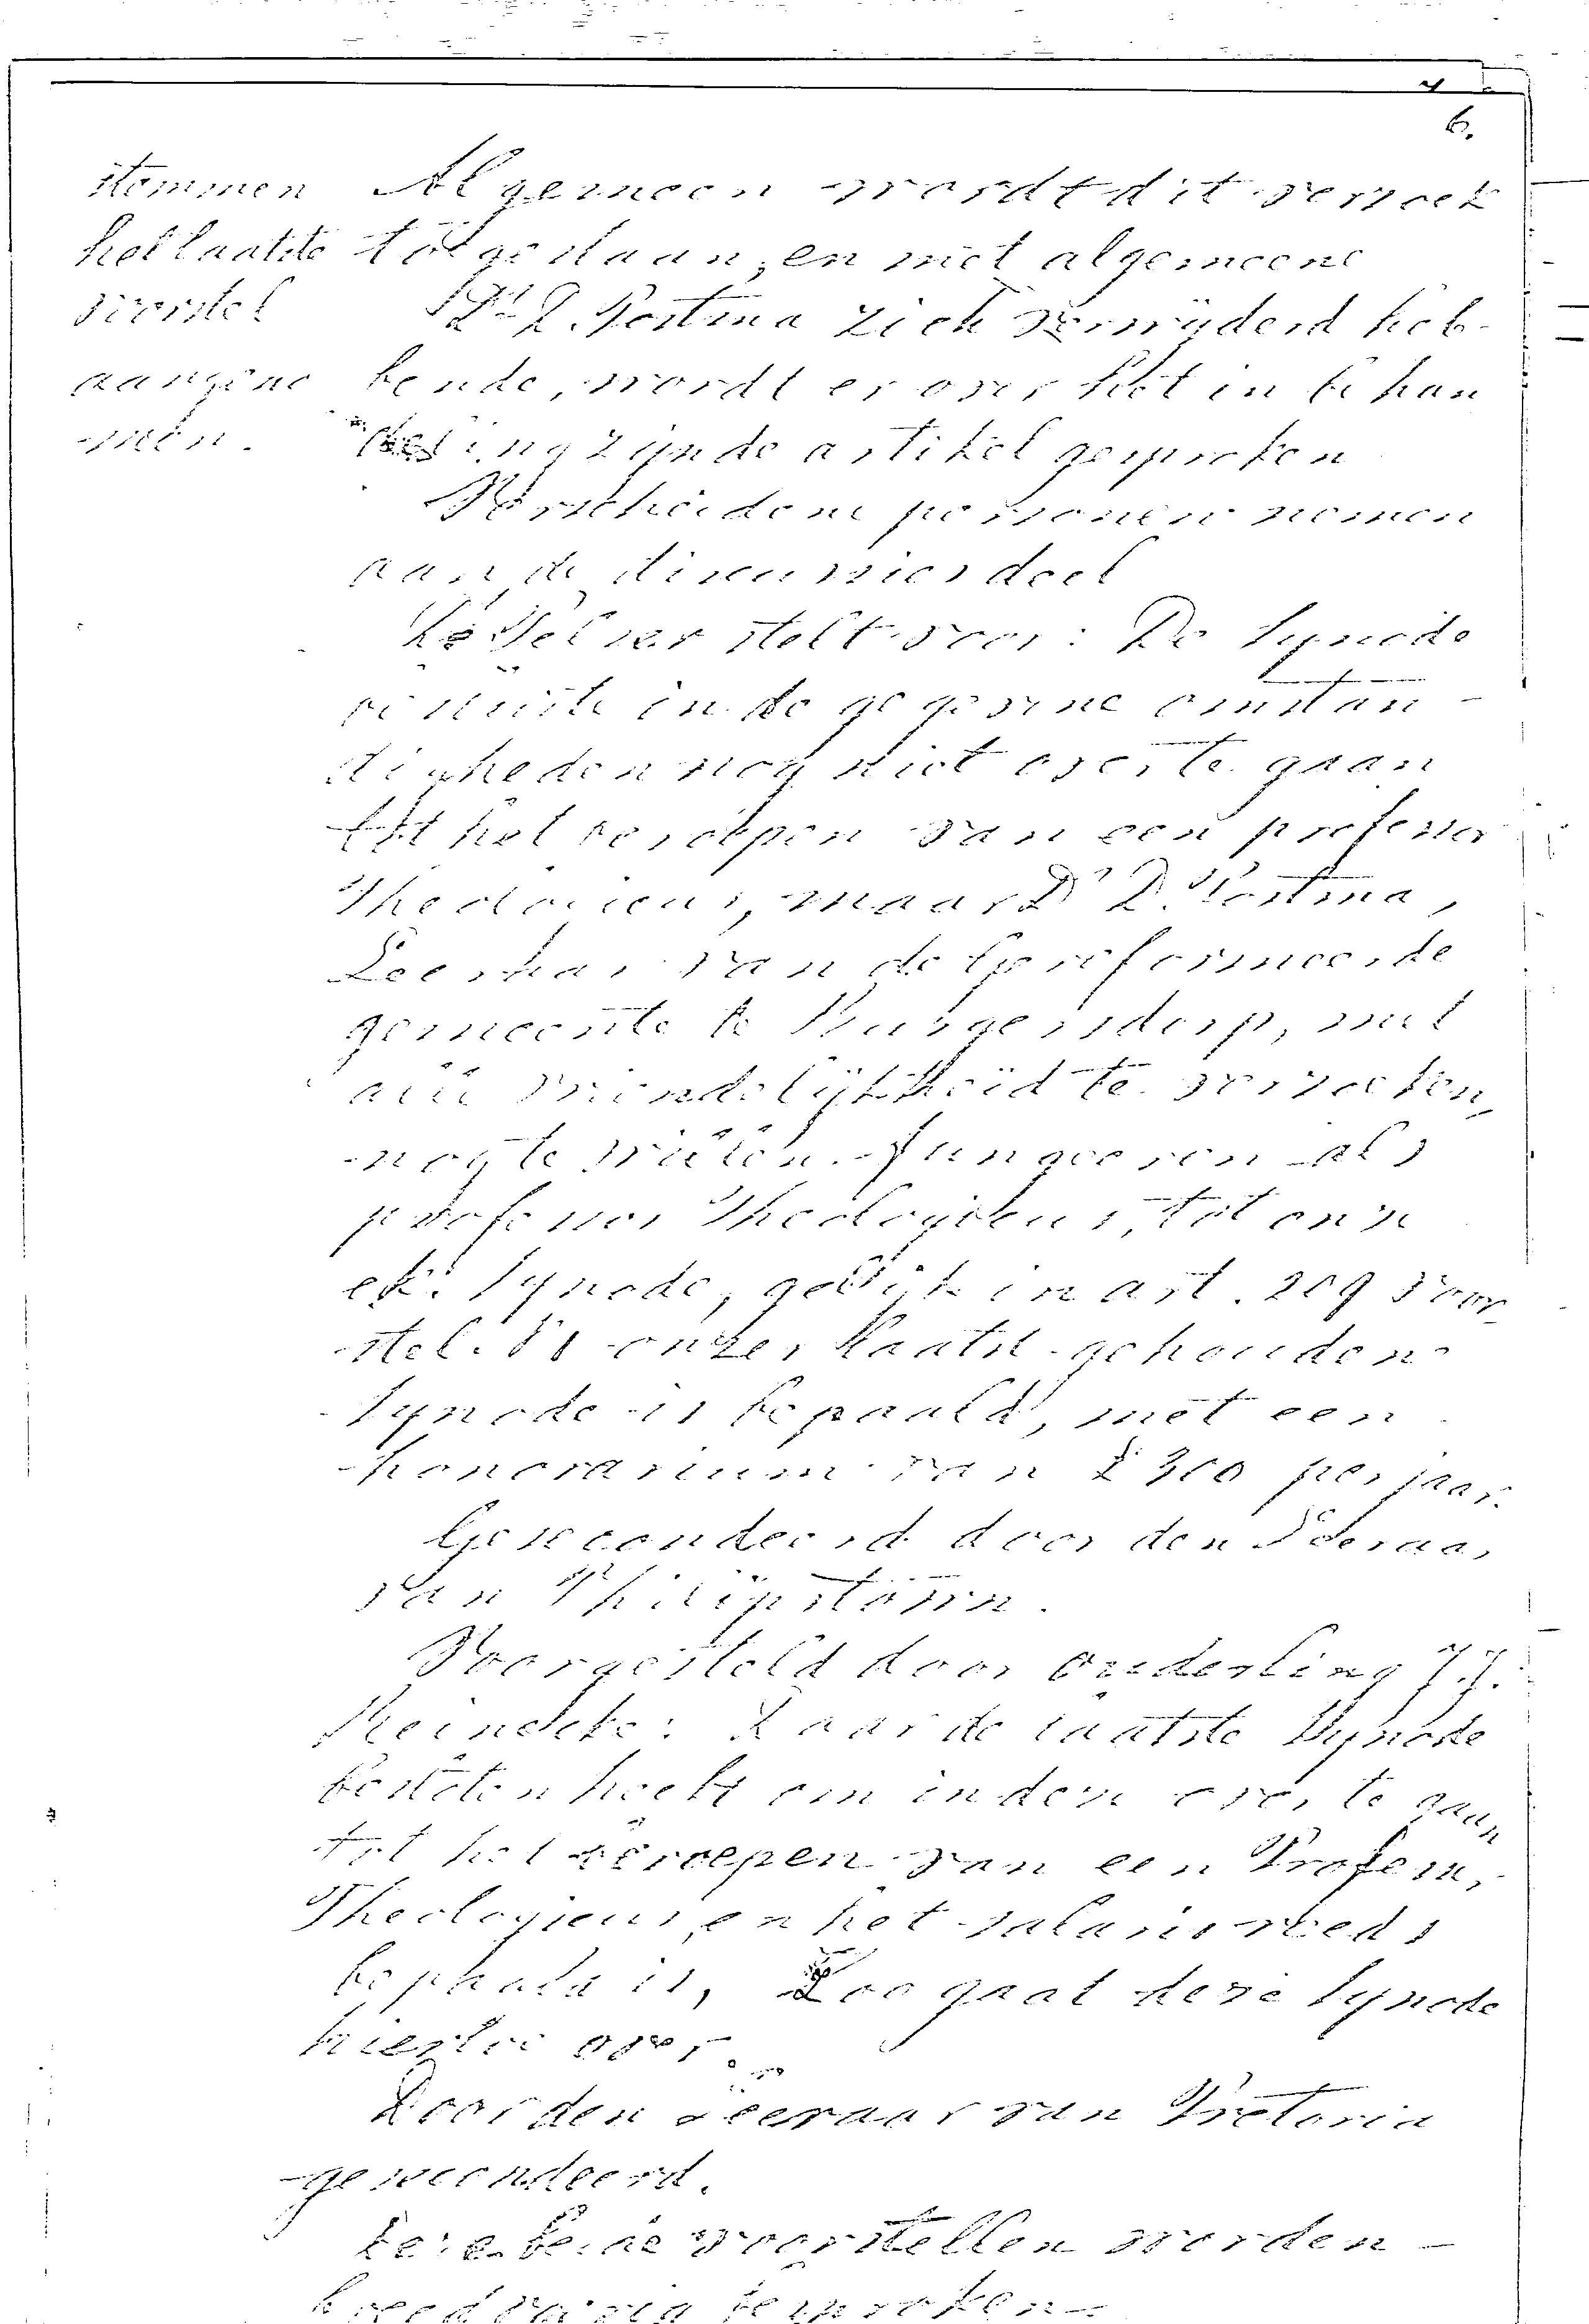 6.
stemmen
het laatste
voorstel
aangeno
-men.
Algemeen wordt dit verzoek
toegestaan, en met algemeene
Ds D. Postma zich verwijderd heb-
bende, wordt er over het in behan
deling zijnde artikel gesproken
Verscheidene personen nemen
aan de discussies deel
stelt voor: De Synode
besluite in de gegevene omstan-
digheden nog niet over te gaan
tot het beroepen van een professor
Theologicus, maar Ds D. Postma,
Leeraar van de Gereformeerde
gemeente te Burgersdorp, met
alle vriendelijkheid te verzoeken,
nog te willen fungeeren als
professor Theologicus, tot onze
ek. Synode, gelijk in art. 209 voor-
stel. onzer laatst gehoudene
Synode is bepaald, met een
honorarium van £300 per jaar.
Gesecondeerd door den Leeraar
van Philipstown.
Voorgesteld door Ouderling J.J.
Daar de laatste Synode
besloten heeft om in dezen over te gaan
tot het beroepen van een Professor
Theologicus, en het salaris reeds
bepaald is, Zoo gaat deze Synode
hiertoe over.
Door den Leeraar van Pretoria
gesecondeerd.
Deze beide voorstellen worden
breedvoerig besproken